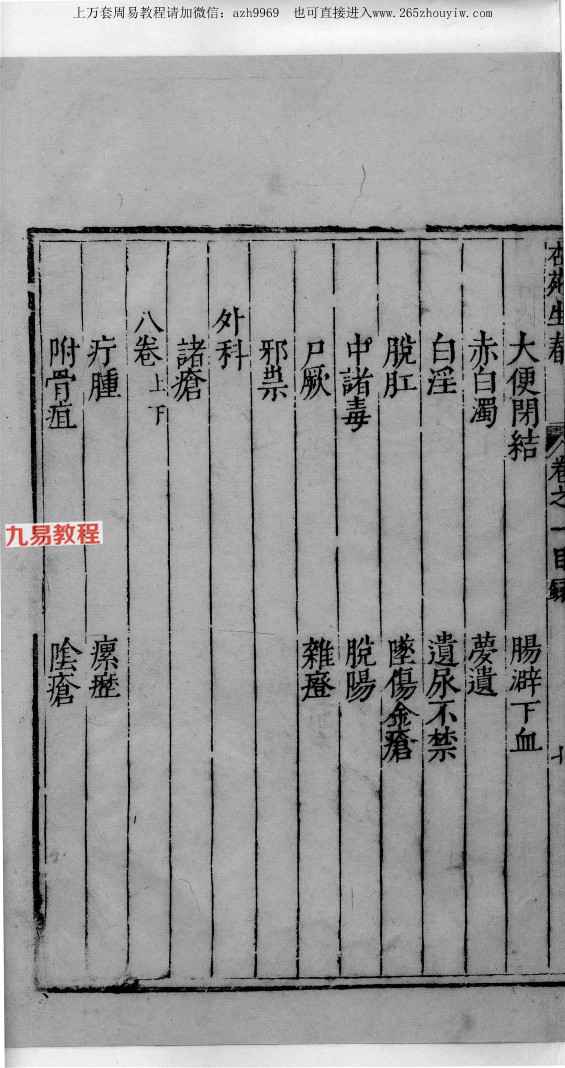 上万套周易教程请加微信：azh9969　也可直接进入www.265zhouyiw.com
杏苑生春
卷之一目録
大便閉結　腸澼下血
赤白濁　夢遺
白淫　遺尿不禁
脫肛　墜傷金瘡
中諸毒　脫陽
尸厥　雜證
邪祟
外科
諸瘡
八卷上下
疔腫　瘰癧
附骨疽　陰瘡
九易教程